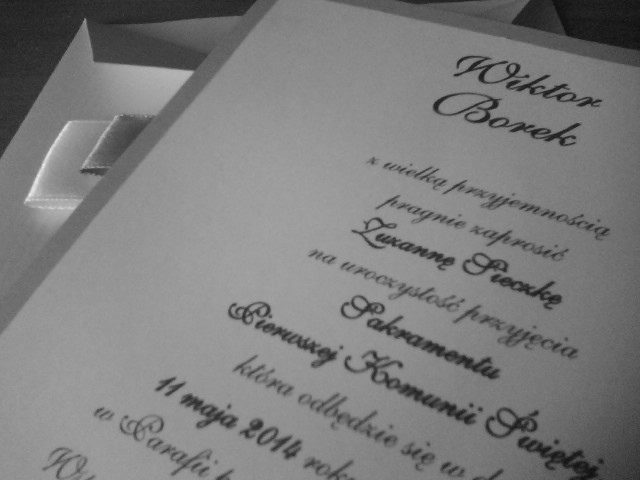 Wiktor
Borek
z wielką przyjemnością
pragnie zaprosić
Zuzannę Sieczkę
na uroczystość przyjęcia
Sakramentu
Pierwszej Komunii Świętej
która odbędzie się w
11 maja 2014 roku
w Parafii